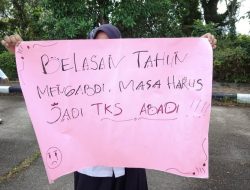 BELASAN TAHUN
MENGABDI, MASA HARUS
JADI TKS ABADI !!!!